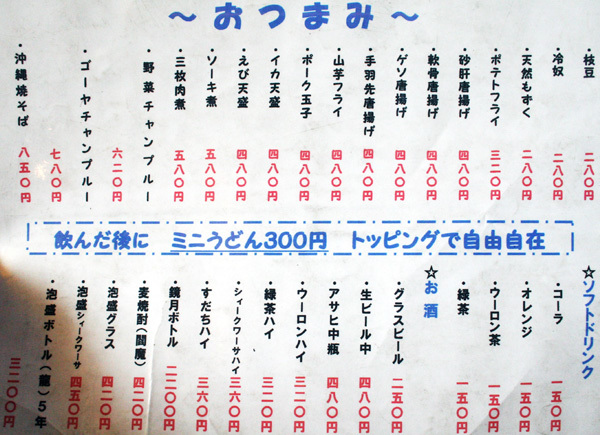 ～おつまみ～
・枝豆 二八〇円
・冷奴 二八〇円
・天然もずく 二八〇円
・ポテトフライ 三二〇円
・砂肝唐揚げ 四八〇円
・軟骨唐揚げ 四八〇円
・ゲソ唐揚げ 四八〇円
・手羽先唐揚げ 四八〇円
・山芋フライ 四八〇円
・ポーク玉子 四八〇円
・イカ天盛 四八〇円
・えび天盛 四八〇円
・ソーキ煮 五八〇円
・三枚肉煮 五八〇円
・野菜チャンプルー 六二〇円
・ゴーヤチャンプルー 七八〇円
・沖縄焼そば 八五〇円
飲んだ後に ミニうどん300円 トッピングで自由自在
☆ソフトドリンク
・コーラ 一五〇円
・オレンジ 一五〇円
・ウーロン茶 一五〇円
・緑茶 一五〇円
☆お酒
・グラスビール 二五〇円
・生ビール中 四八〇円
・アサヒ中瓶 四八〇円
・ウーロンハイ 三二〇円
・緑茶ハイ 三二〇円
・シィークワーサハイ 三六〇円
・すだちハイ 三六〇円
・鏡月ボトル 二二〇〇円
・麦焼酎(閻魔) 四二〇円
・泡盛グラス 四二〇円
・泡盛シィークワーサ 四五〇円
・泡盛ボトル(龍)5年 三二〇〇円